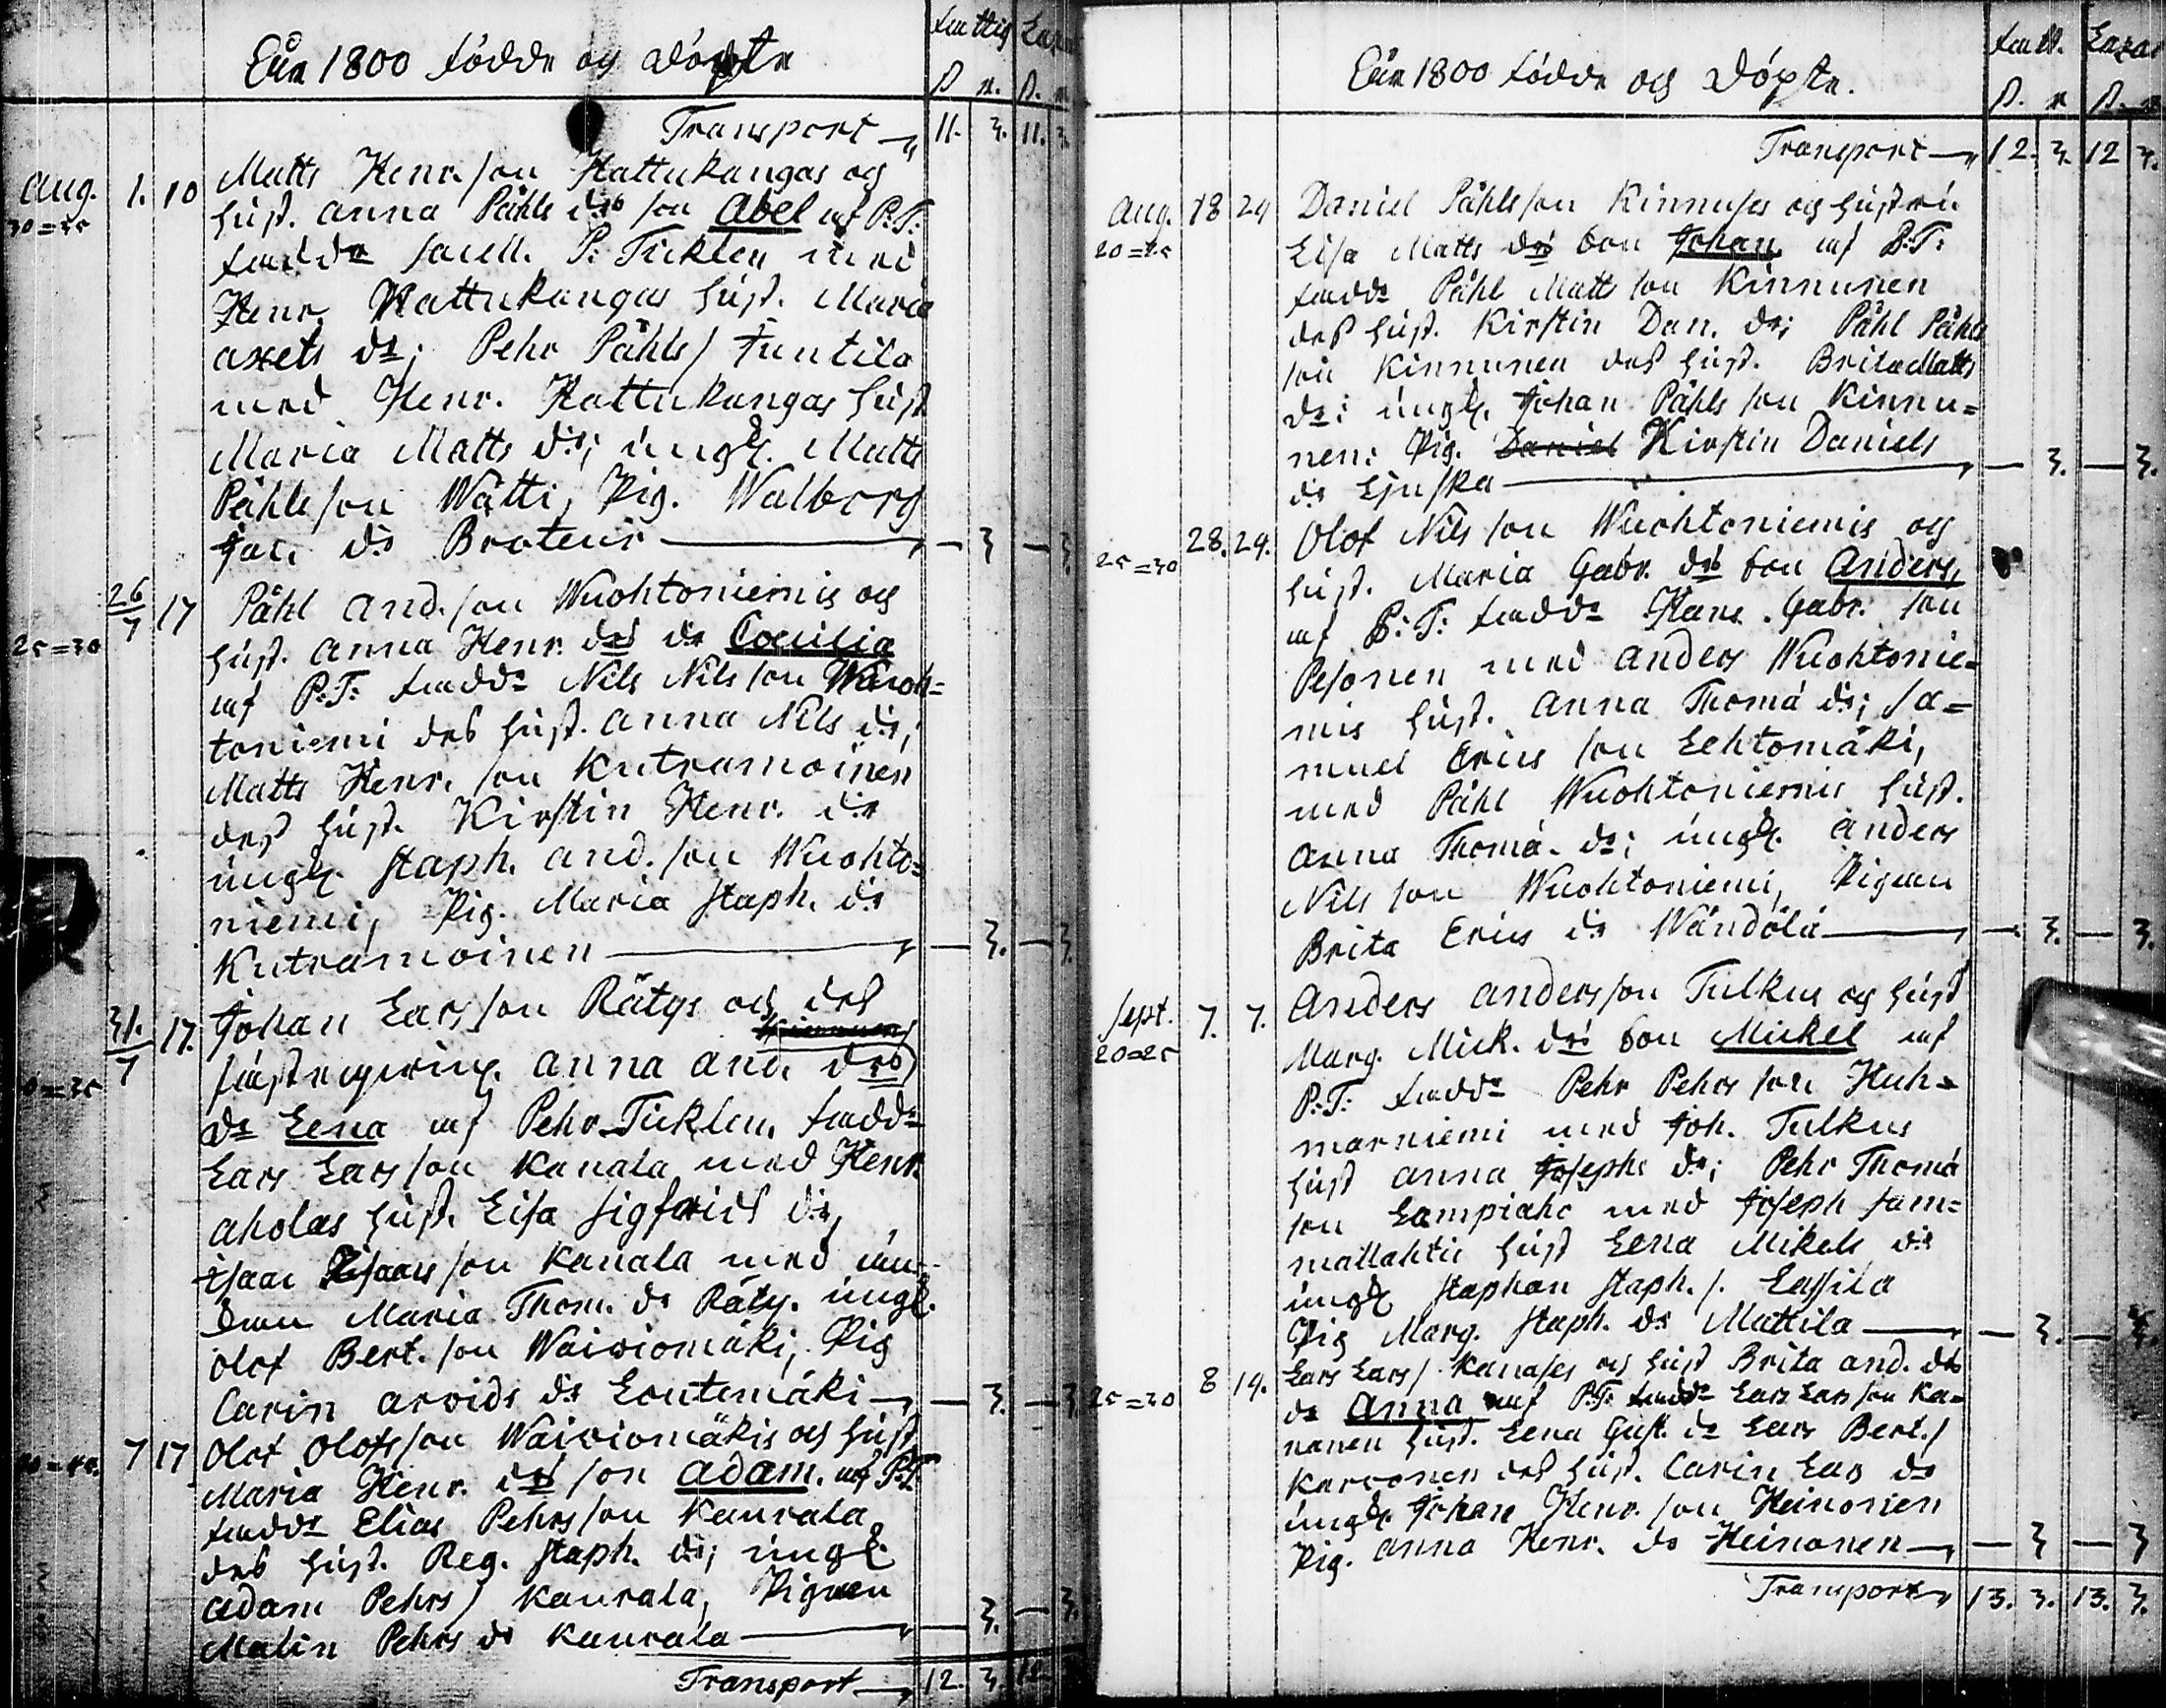 Åhr 1800 födde och döpte
Fattig Laza
ß r. ß. r.
Transport 11. 3. 11. 3
Aug. 1. 10 Matts Henr. son Hattukangas och
30=35 hust. Anna Påhls drs son Abel af P: T:
Fadd:r P: Ticklen med
Henr. Hattukangas hust. Maria
Axels dr; Pehr Påhls/ Juntila
med Henr. Hattukangas hust
Maria Matts dr; ungk. Matts
Påhls son Wätti, Pig. Walborg
Jac. dr Brotens — 3 — 3.
26/7 17 Påhl And. son Wuohtoniemis och
25=30 hust. Anna Henr. drs dr Cæcilia
af P: T: Fadd:r Nils Nils son Wuoh=
toniemi des hust. Anna Nils dr;
Matts Henr. son Kutramoinen
des hust. Kirstin Henr. dr
ungk. Staph. And. son Wuohto=
niemi, Pig. Maria Staph. dr
Kutramoinen — 3. — 3.
31./7 17. Johan Lars son Rätys och des
Anna And. drs
dr Lena af Pehr Ticklen, Fadd:r
Lars Lars son Kanala med Henr.
Aholas hust. Lisa Sigfrids dr,
Isaac Isaacs son Kanala med
Maria Thom. dr Räty. ungk.
Olof Bert. son Waiwiomäki, Pig
Carin Arvids dr Lontemäki — 3. — 3
7 17 Olof Olofs son Waiwiomäkis och hust
Maria Henr. drs son Adam. af P: T:
Fadd:r Elias Pehrs son Kaurala
des hust. Reg. Staph. dr; ungk
Adam Pehrs/ Kaurala, Pigan
Malin Pehrs dr Kaurala — 3. — 3.
Transport 12. 3. 12.
Åhr 1800 födde och döpte.
Fatt. Lazar
ß. r ß. r
Transport 12. 3. 12 3.
Aug. 18 24 Daniel Påhls son Kinnuses och hustru
20=25 Lisa Matts drs son Johan af P: T:
Fadd:r Påhl Matts son Kinnunen
des hust. Kirstin Dan. dr; Påhl Påhls
son Kinnunen des hust. Brita Matts
dr; ungk. Johan Påhls son Kinnu=
nen: Pig. Daniel Kirstin Daniels
dr Ljuska — 3. — 3.
28. 29. Olof Nils son Wuohtoniemis och
25=30 hust. Maria Gabr. drs son Anders,
af P: T: Fadd:r Hans Gabr. son
Pesonen med Anders Wuohtonie=
mis hust. Anna Thomä dr; Sa=
muel Erics son Lehtomäki,
med Påhl Wuohtoniemis hust.
Anna Thomä. dr; ungk. Anders
Nils son Wuohtoniemi, Pigan
Brita Erics dr Wändölä — 3. — 3.
Sept. 7. 7. Anders Anders son Tulkus och hust
20=25 Marg. Mick. drs son Mickel af
P: T: Fadd:r Pehr Pehrs son Huh=
marniemi med Joh. Tulkus
hust Anna Josephs dr; Pehr Thomä
son Lampiaho med Joseph Sam=
mallahtis hust Lena Mikels dr
ungk Staphan Staph. /. Lassila
Pig Marg. Staph. dr Mattila — 3. — 3.
8 14. Lars Lars/ Kanases och hust Brita And. drs
25=30 dr Anna af P: T: Fadd:r Lars Lars son Ka=
nanen hust. Lena Gust. dr Lars Bert./
Karvonen des hust. Carin Lars dr
ungk. Johan Henr. son Heinonen
Pig. Anna Henr. dr Heinonen — 3 — 3
Transport 13. 3. 13. 3.